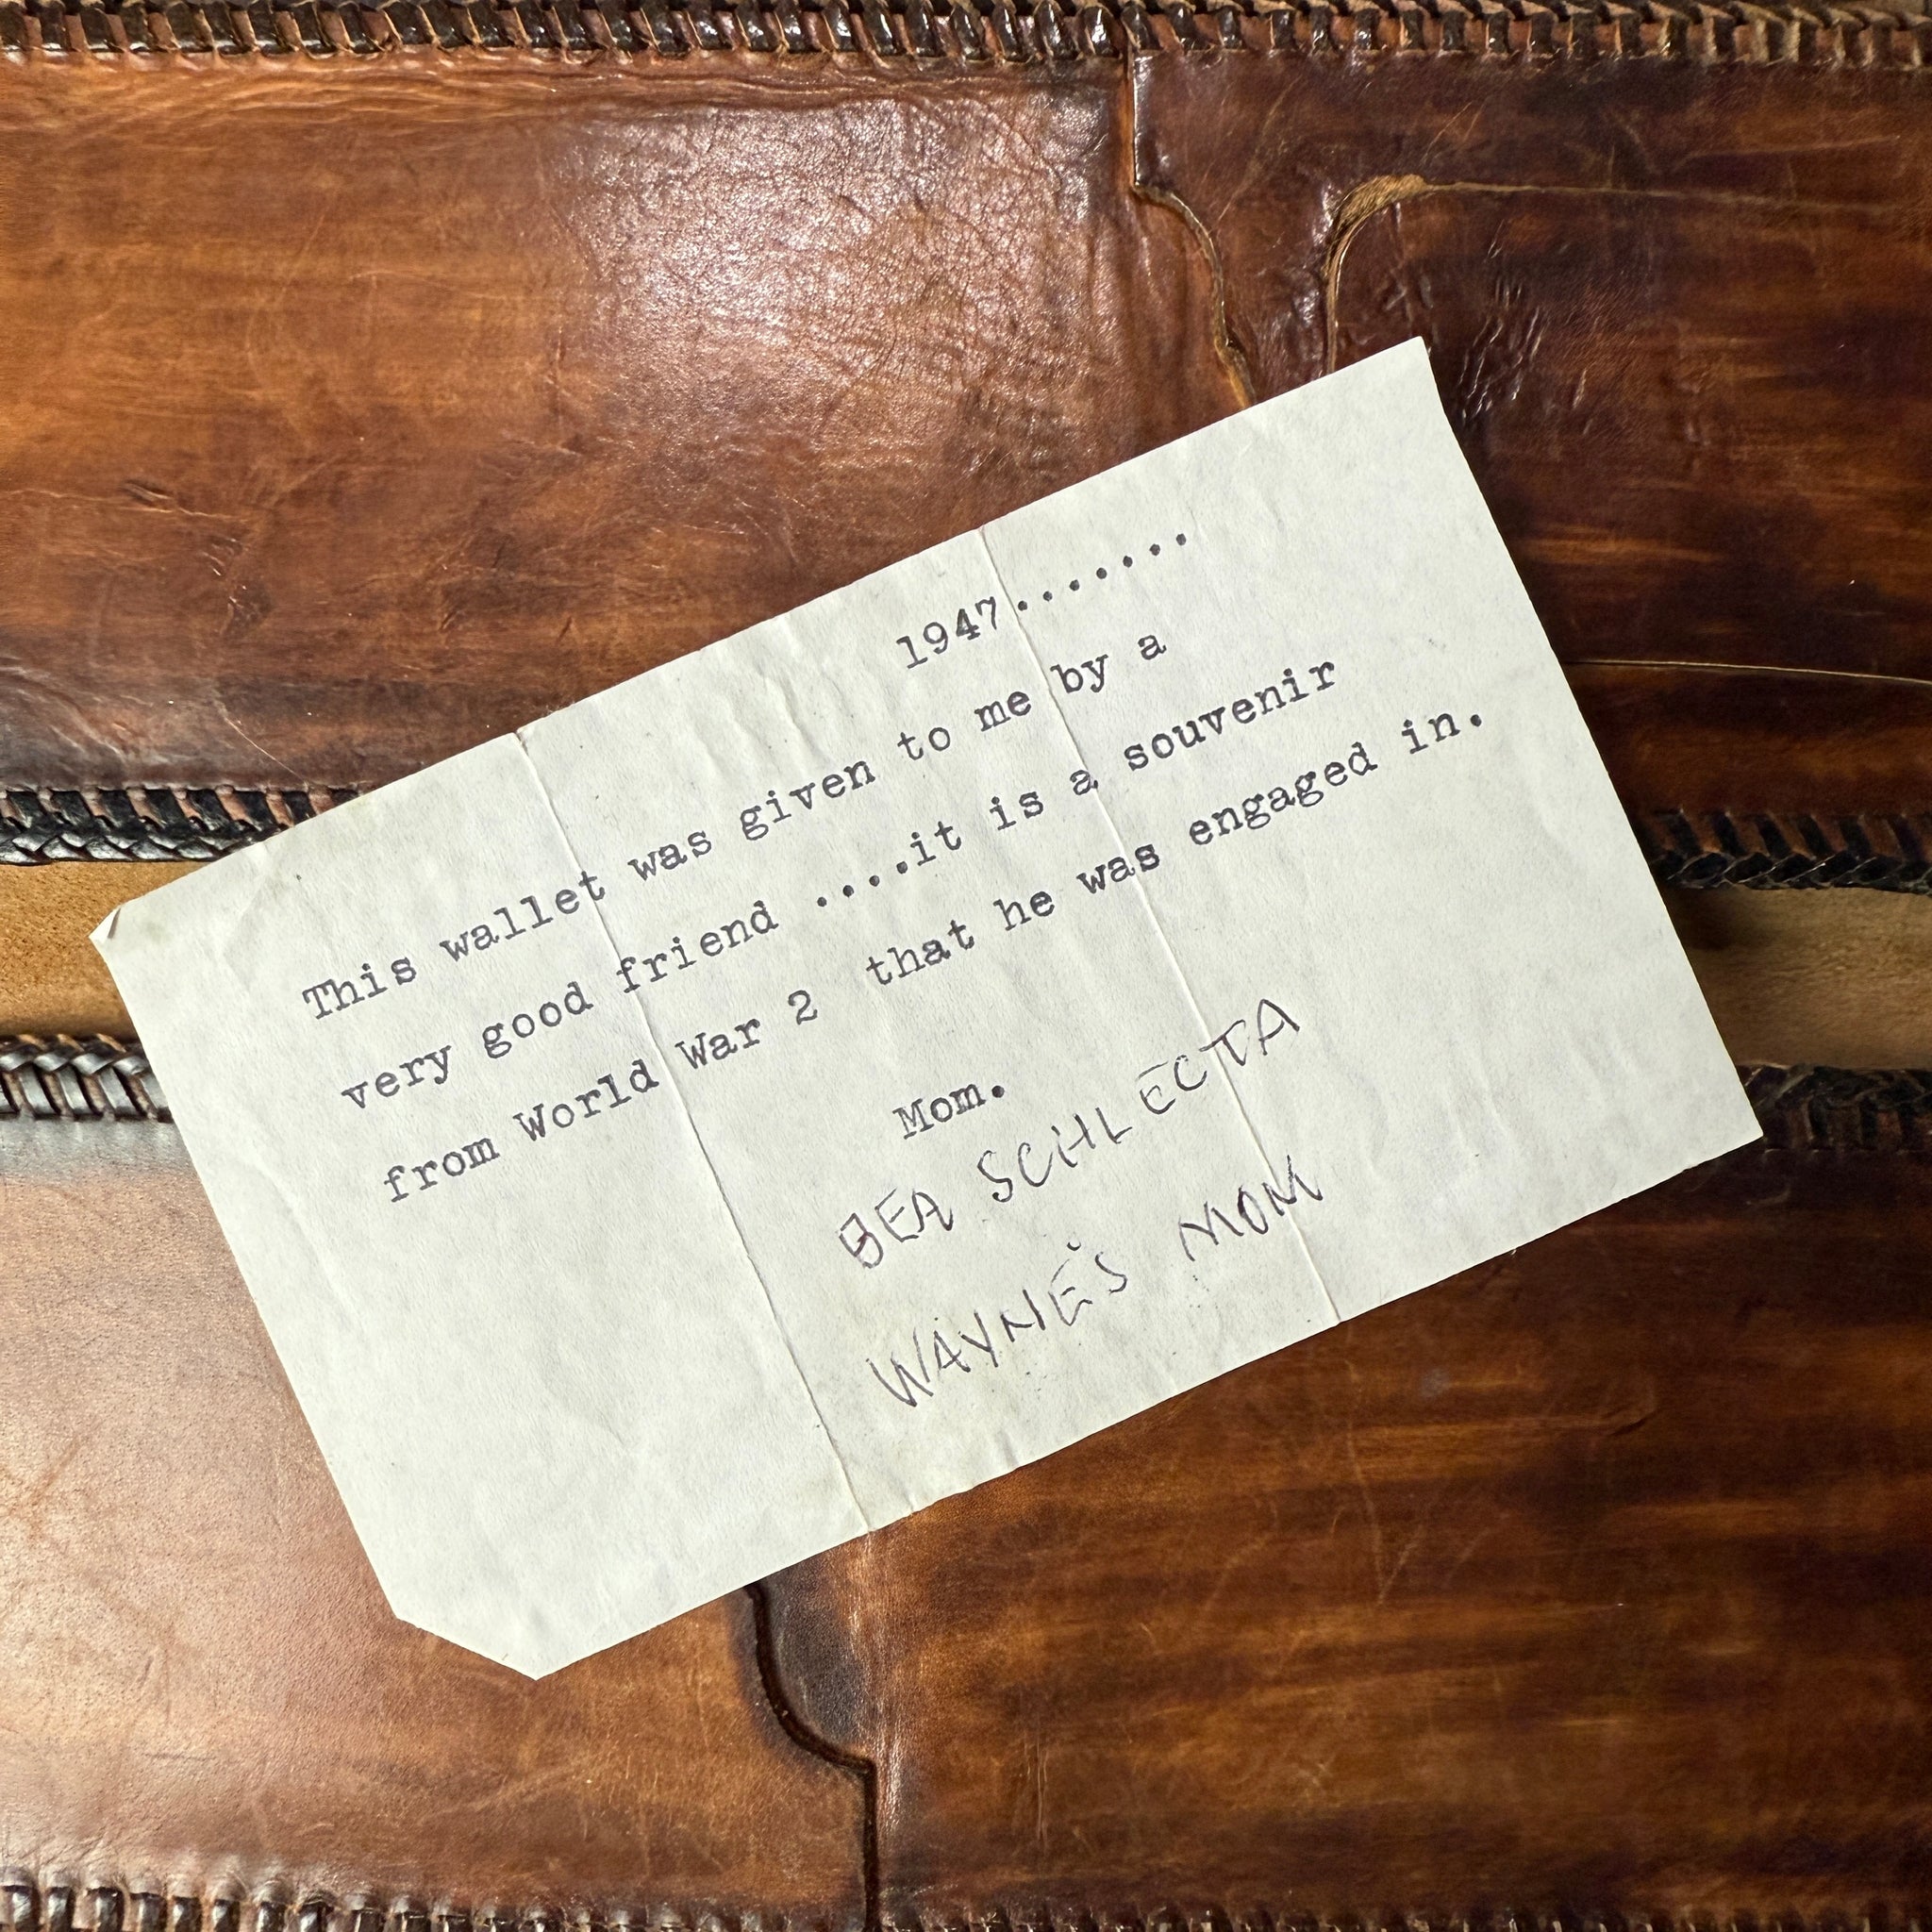 1947.......
This wallet was given to me by a
very good friend ....it is a souvenir
from World War 2  that he was engaged in.
Mom.
BEA SCHLECTA
WAYNE'S MOM